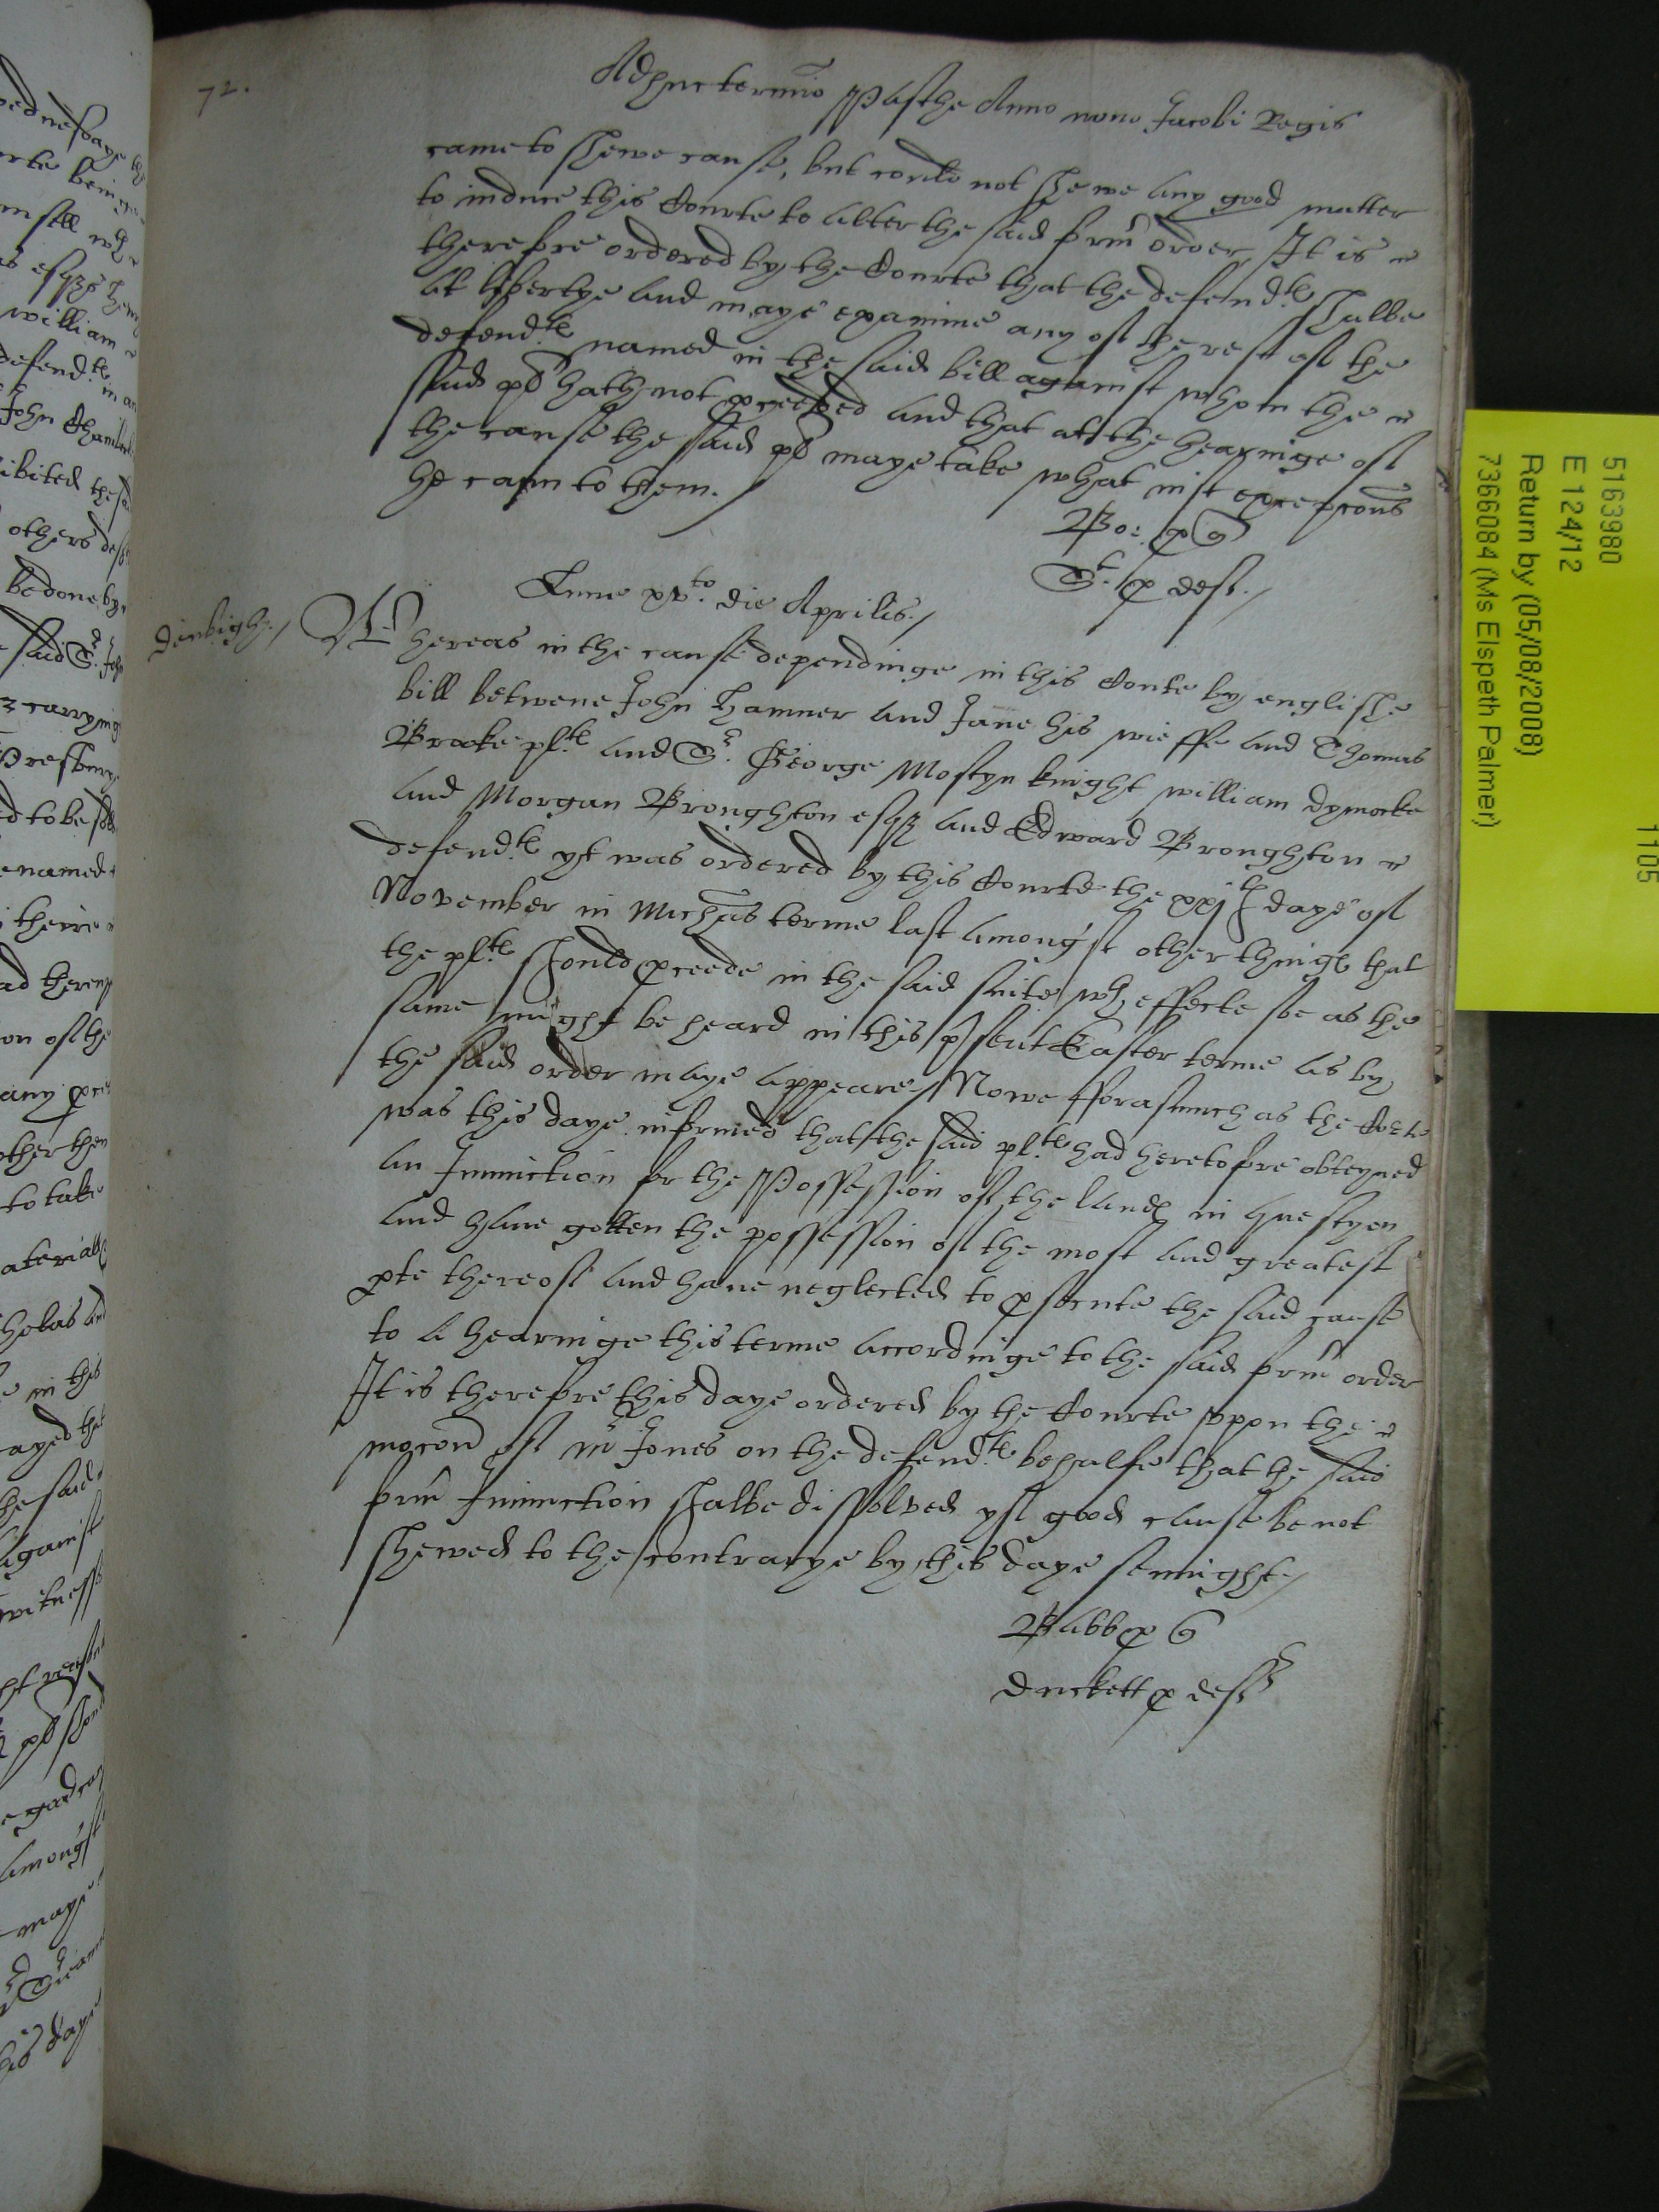 72.
Adhuc termino Pasche Anno nono Jacobi Regis
came to shewe cause, but could not shewe any good matter
to induce this Courte to alter the said form̃ order, It is
therefore ordered by the Courte that the defend.tes shalbe
at libertye and maye examine any of the rest of the
defend.tes named in the said bill against whom the
said pl̃ hath not proceeded and that at the hearinge of
the cause the said pl̃ maye take what iust excepcons
he cann to them./
Bo: p Q
S. p def./
Lune xv.to die Aprilis./
Denbigh./
Whereas in the cause dependinge in this Courte by englishe
bill betwene John Hamner and Jane his wieffe and Thomas
Brooke pl.tes and S.r George Mostyn knight william dymocke
and Morgan Broughton esqz and Edward Broughton
defend.tes yt was ordered by this Courte the xxjth daye of
November in Mich̃as terme last amongst other things that
the pl.tes should proceede in the said suite wth effecte soe as the
same might be heard in this p̃sent Easter terme as by
the said order maye appeare, Nowe fforasmuch as the Corte
was this daye informed that the said pl.tes had heretofore obteyned
an Iniunction for the Possession of the lands in questyon
and haue gotten the possession of the most and greatest
pte thereof and haue neglected to psecute the said cause
to a hearinge this terme accordinge to the said form̃ order
It is therefore this daye ordered by the Courte vppon the
mocon of mr Jones on the defend.tes behalfe that the said
form̃ Iniunction shalbe dissolved yf good cause be not
shewed to the contrarye by this daye sennight./
Babb p Q
duckett p def
5163980
E 124/12
Return by (05/08/2008)
7366084 (Ms Elspeth Palmer)
1105